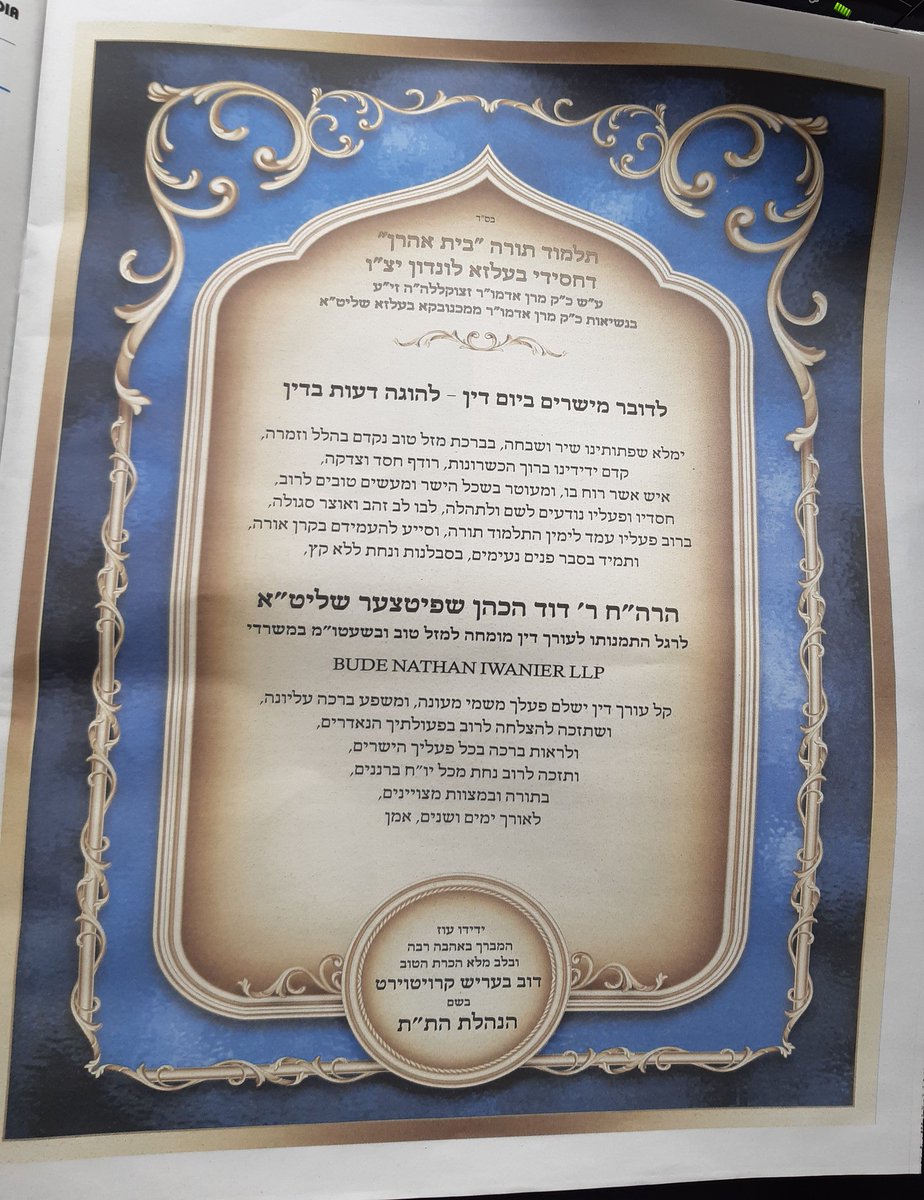 בס"ד
תלמוד תורה "בית אהרן"
דחסידי בעלזא לונדון יצ"ו
ע"ש כ"ק מרן אדמו"ר זצוקללה"ה זי"ע
בנשיאות כ"ק מרן אדמו"ר ממכנובקא בעלזא שליט"א
לדובר מישרים ביום דין - להוגה דעות בדין
ימלא שפתותינו שיר ושבחה, בברכת מזל טוב נקדם בהלל וזמרה,
קדם ידידינו ברוך הכשרונות, רודף חסד וצדקה,
איש אשר רוח בו, ומעוטר בשכל הישר ומעשים טובים לרוב,
חסדיו ופעליו נודעים לשם ולתהלה, לבו לב זהב ואוצר סגולה,
ברוב פעליו עמד לימין התלמוד תורה, וסייע להעמידם בקרן אורה,
ותמיד בסבר פנים נעימים, בסבלנות ונחת ללא קץ,
הרה"ח ר' דוד הכהן שפיטצער שליט"א
לרגל התמנותו לעורך דין מומחה למזל טוב ובשעטו"מ במשרדי
BUDE NATHAN IWANIER LLP
קל עורך דין ישלם פעלך משמי מעונה, ומשפע ברכה עליונה,
ושתזכה להצלחה לרוב בפעולתיך הנאדרים,
ולראות ברכה בכל פעליך הישרים,
ותזכה לרוב נחת מכל יו"ח ברננים,
בתורה ובמצוות מצויינים,
לאורך ימים ושנים, אמן
ידידו עוז
המברך באהבה רבה
ובלב מלא הכרת הטוב
דוב בעריש קרויטווירט
בשם
הנהלת הת"ת